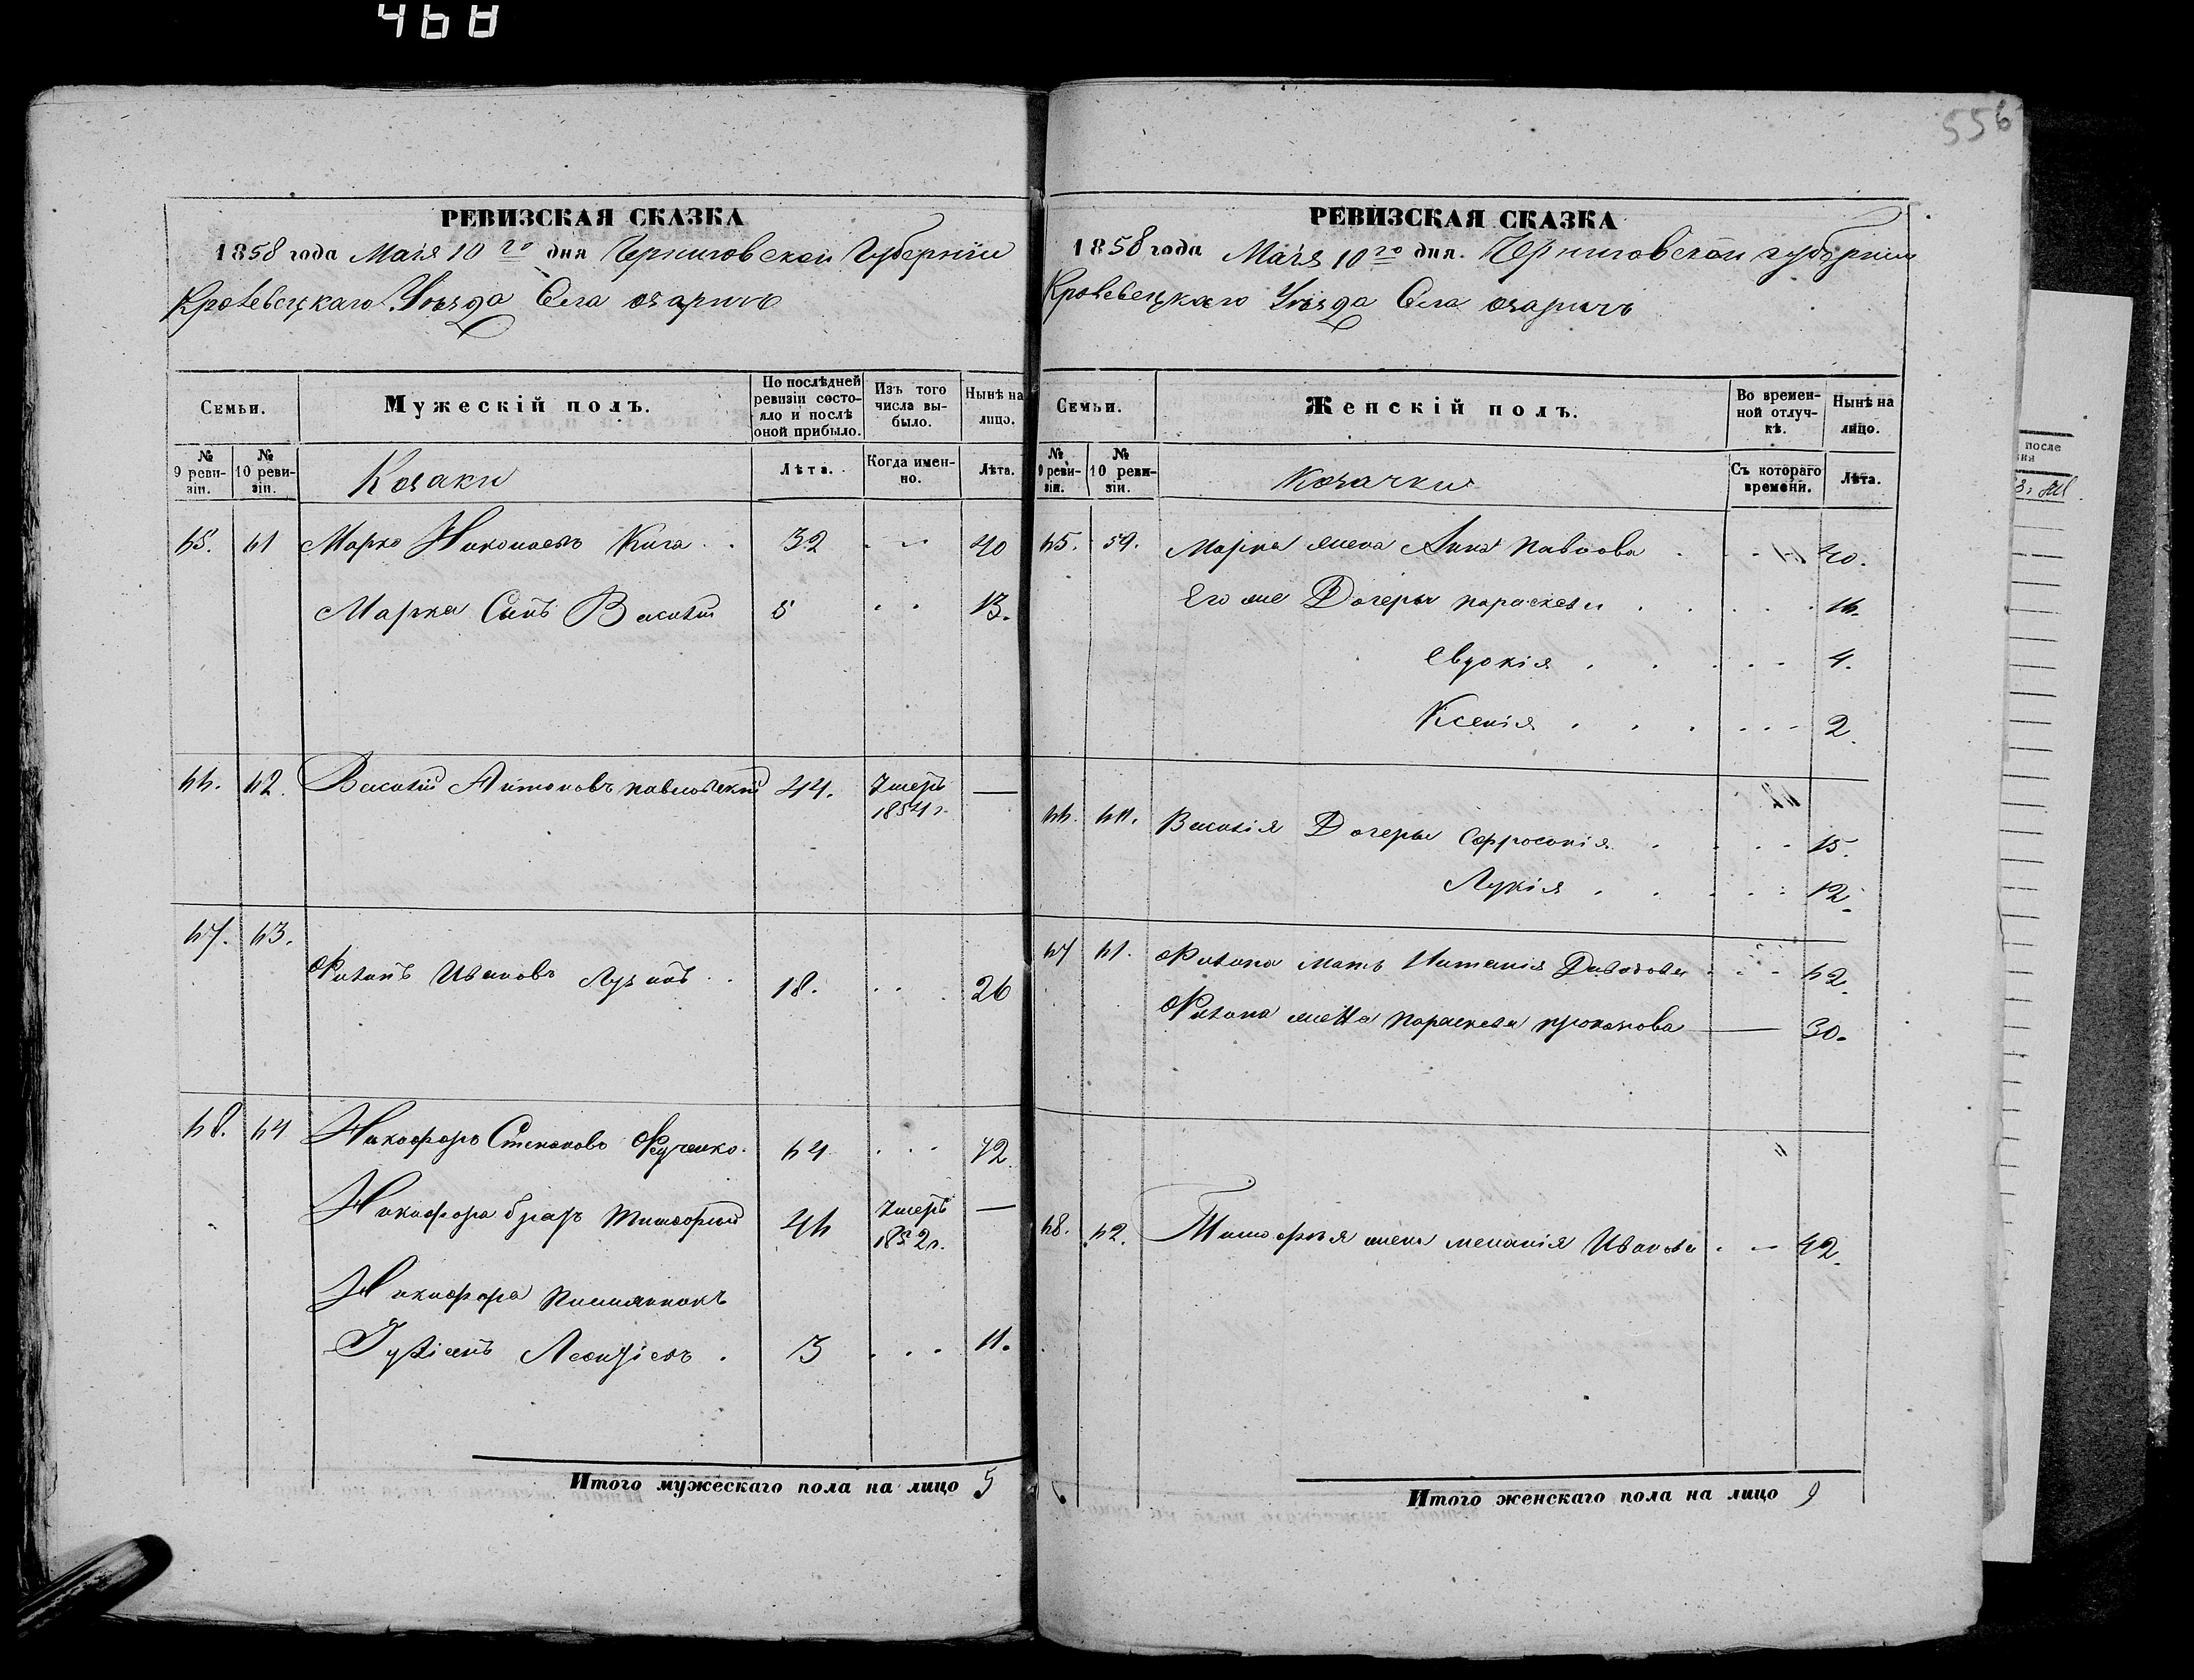 468
556
РЕВИЗСКАЯ СКАЗКА
1858 года Мая 10го дня Черниговской Губерніи
Кролевецкаго Уѣзда Села озаричъ
Семьи.
Мужескій полъ.
По послѣдней ревизіи состояло и послѣ оной прибыло.
Изъ того числа выбыло.
Нынѣ на лицо.
№ 9 ревизіи.
№ 10 ревизіи.
Козаки
Лѣта.
Когда именно.
Лѣта.
65. 61 Марко Николаевъ Кига 32 40
Марка Сынъ Василій 5 13.
66. 62. Василій Антоновъ павловскій 44. Умеръ —
1854 г.
67. 63.
Филипъ Ивановъ 18. 26
68. 64 Никифоръ Степановъ Федченко. 64 72.
Никифора братъ Тимофѣй 46 Умеръ —
1852 г.
Никифора племянникъ
Леонтіевъ 3 11.
Итого мужескаго пола на лицо 5
РЕВИЗСКАЯ СКАЗКА
1858 года Мая 10го дня. Черниговской губерніи
Кролевецкаго Уѣзда Села озаричъ
Семьи.
Женскій полъ.
Во временной отлучкѣ.
Нынѣ на лицо.
№ 9 ревизіи.
№ 10 ревизіи.
Козачки
Съ котораго времени.
Лѣта.
65. 59. Марка жена Анна павлова 40.
Его же Дочеры параскева 16.
Евдокія 4.
Ксенія 2.
66. 60. Василія Дочеры Ефросинія 15.
Лукія 12.
67 61. Филипа мать Наталія 62.
Филипа жена параскева прокопова — 30.
68. 62. Тимофѣя жена меланія Иванова 42.
Итого женскаго пола на лицо 9
после